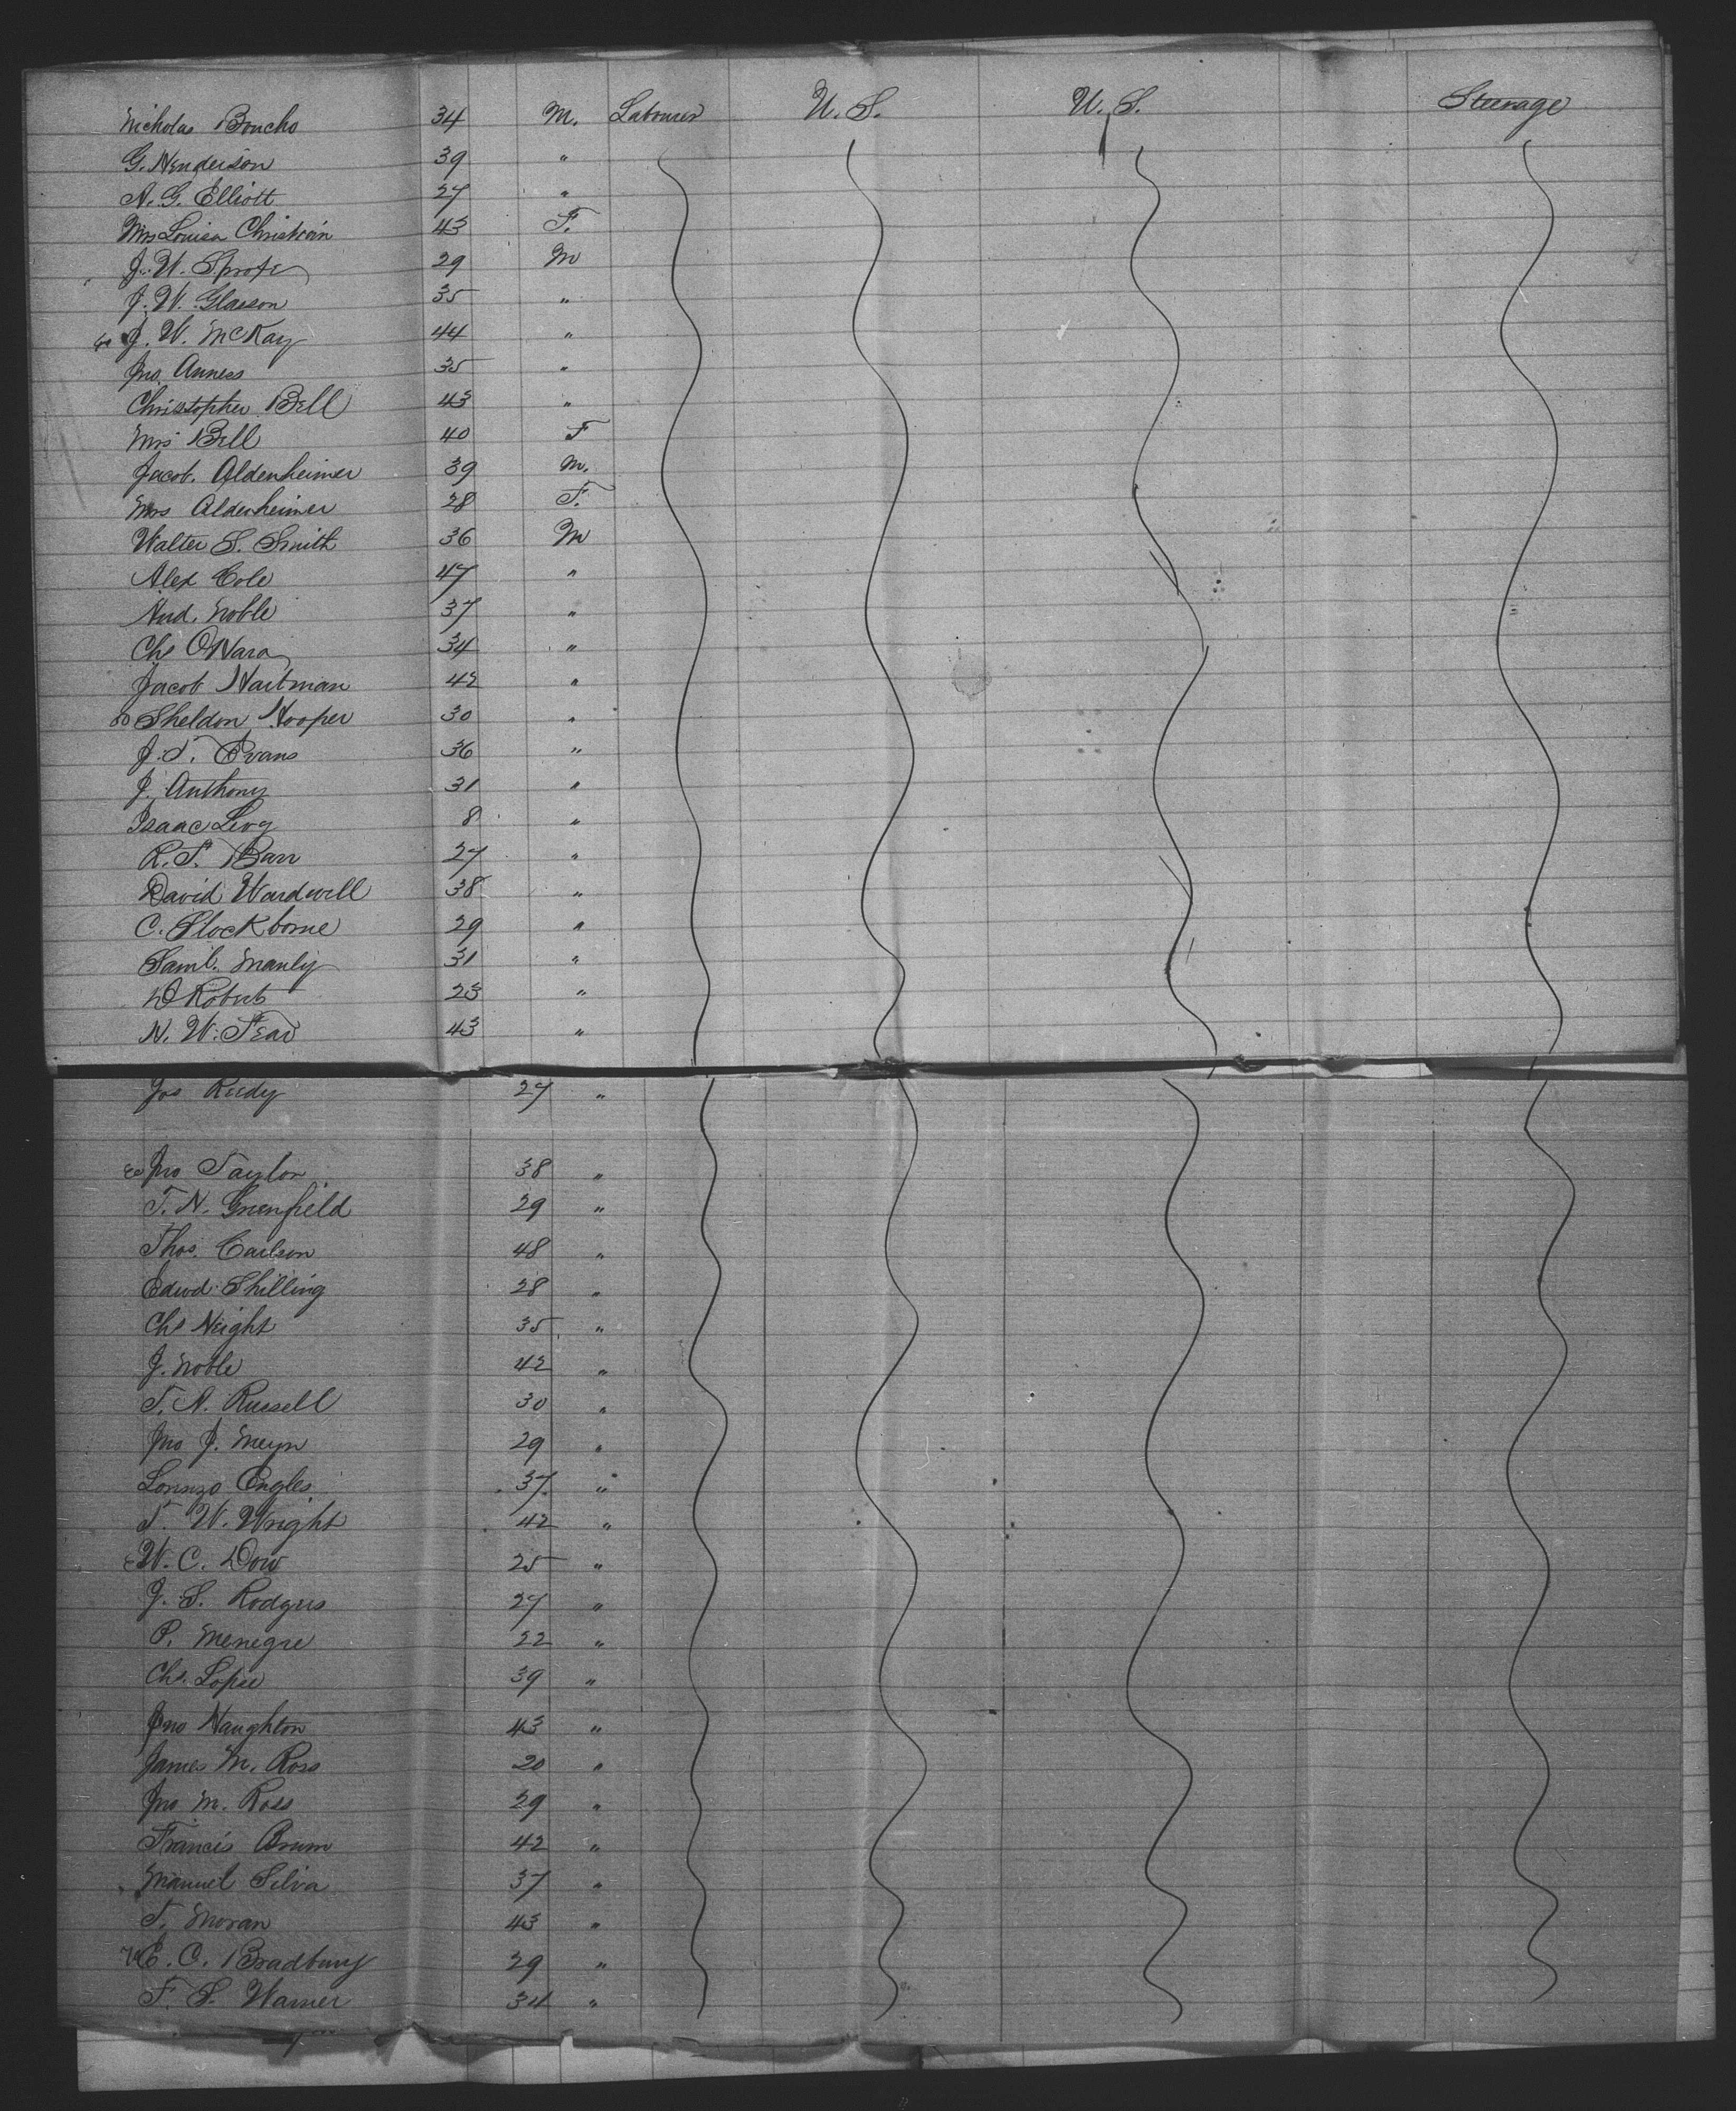 Nicholas Boucho 34 M. Labourer U. S. U. S. Steerage
G. Henderson 39 "
A. G. Elliott 27 "
Mrs Louisa Christvin 43 F.
J. U. 29 M
J. W. Glasson 35 "
J. W. McKay 44 "
Jno. Anness 35 "
Christopher Bell 43 "
Mrs Bell 40 F
Jacob. Aldenheimer 39 M.
Mrs Aldenheimer 28 F.
Walter S. Smith 36 M
Alex Cole 47 "
And. Noble 37 "
Chs OHara 34 "
Jacob Hartman 42 "
Sheldon Hooper 30 "
J. T. Evans 36 "
J. Anthony 31 "
Isaac Levy 8 "
R. T. Barr 27 "
David Wardwell 38 "
C. Stockborne 29 "
Saml. Manly 31 "
D Roberts 23 "
N. W. Fear 43 "
Jos Reedy 27 "
Jno Taylor 38 "
T. N. Greenfield 29 "
Thos. Carlson 48 "
Edwd. Shilling 28 "
Chs Height 35 "
J. Noble 42 "
T. A. Russell 30 "
Jno J. Meyn 29 "
Lorenzo Engles 37 "
T. W. Wright 42 "
W. C. Dow 25 "
J. S. Rodgers 27 "
P. Menegre 22 "
Chs. Lopee 39 "
Jno Haughton 43 "
James M. Ross 20 "
Jno M. Ross 29 "
Francis Brum 42 "
Manuel Silva 37 "
T. Moran 43 "
70 E. C. Bradbury 29 "
F. S. Warner 34 "